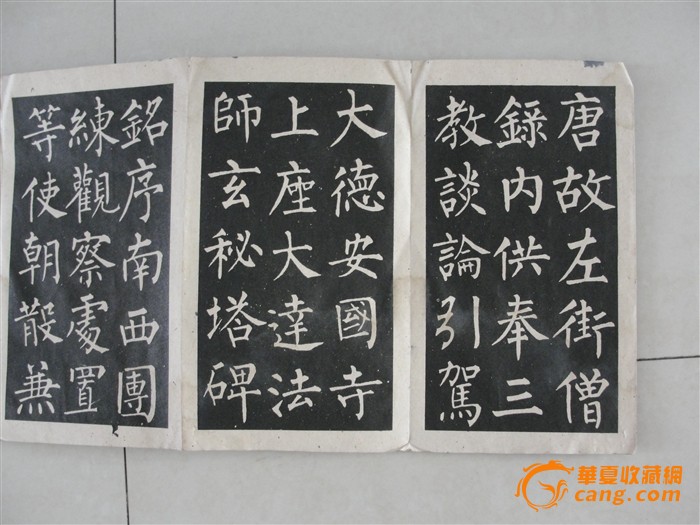 唐故左街僧
錄内供奉三
教談論引駕
大德安國寺
上座大達法
師玄秘塔碑
銘序南西團
練觀察處置
等使朝散兼
華夏收藏網
cang.com